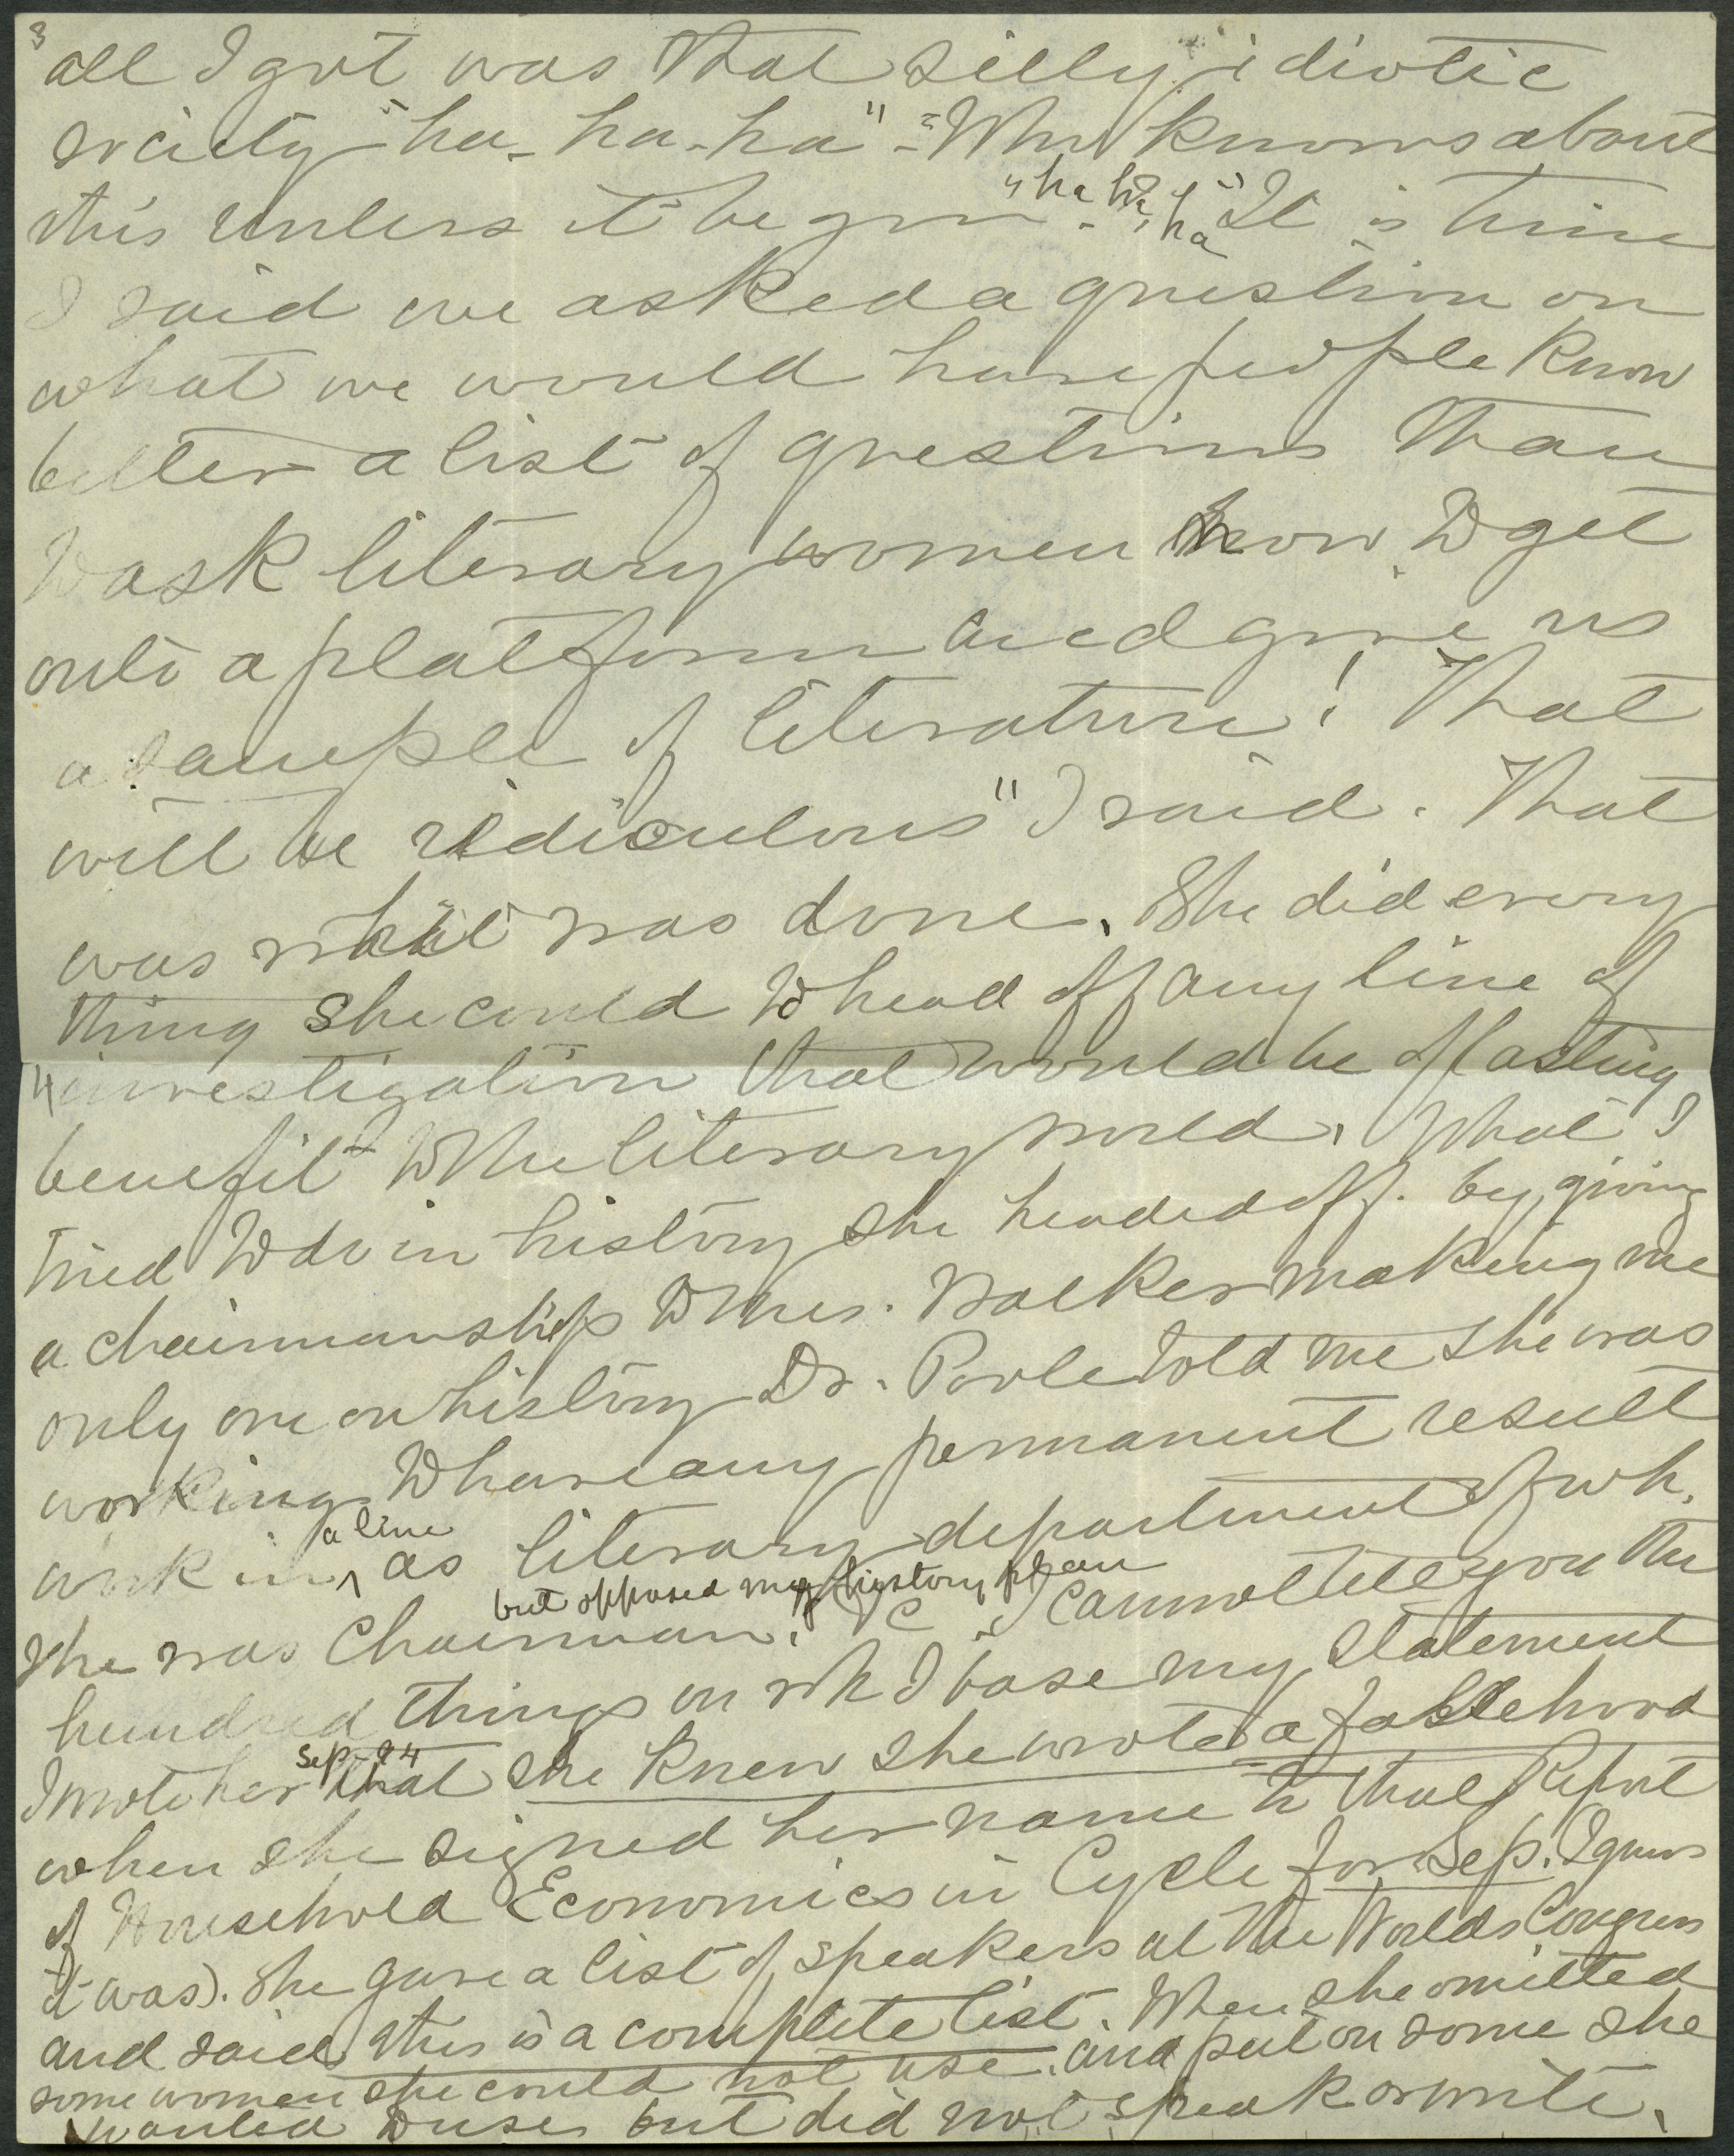 3
all I got was that silly idiotic
society "ha-ha-ha" - "Who knows about
this unless it be you "ha ha, ha" It is time
I said we asked a question on
what we would have people know
better a list of questions than
to ask literary women how to get
onto a platform and give us
a sample of literature! That
will be ridiculous" I said. That
was what was done. She did every
thing she could to head off any line of
4 investigation that would be of lasting
benefit to the literary world. What I
tried to do in history she headed off. by giving
a chairmanship to Mrs. Walker making me
only one on history Dr. Poole told me she was
working to have any permanent result
work in, a line as literary department of wh.
she was Chairman. but opposed my history plan I cannot tell you the
hundred things on wh I base my statement
I wrote her Sep-94 that she knew she wrote a falsehood
when she signed her name to that Report
of Household Economics in Cycle for Sep. I guess
it was). She gave a list of speakers at the Worlds Congress
and said, this is a complete list. When she omitted
some women she could not use. and put on some she
wanted to use but did not speak or write.